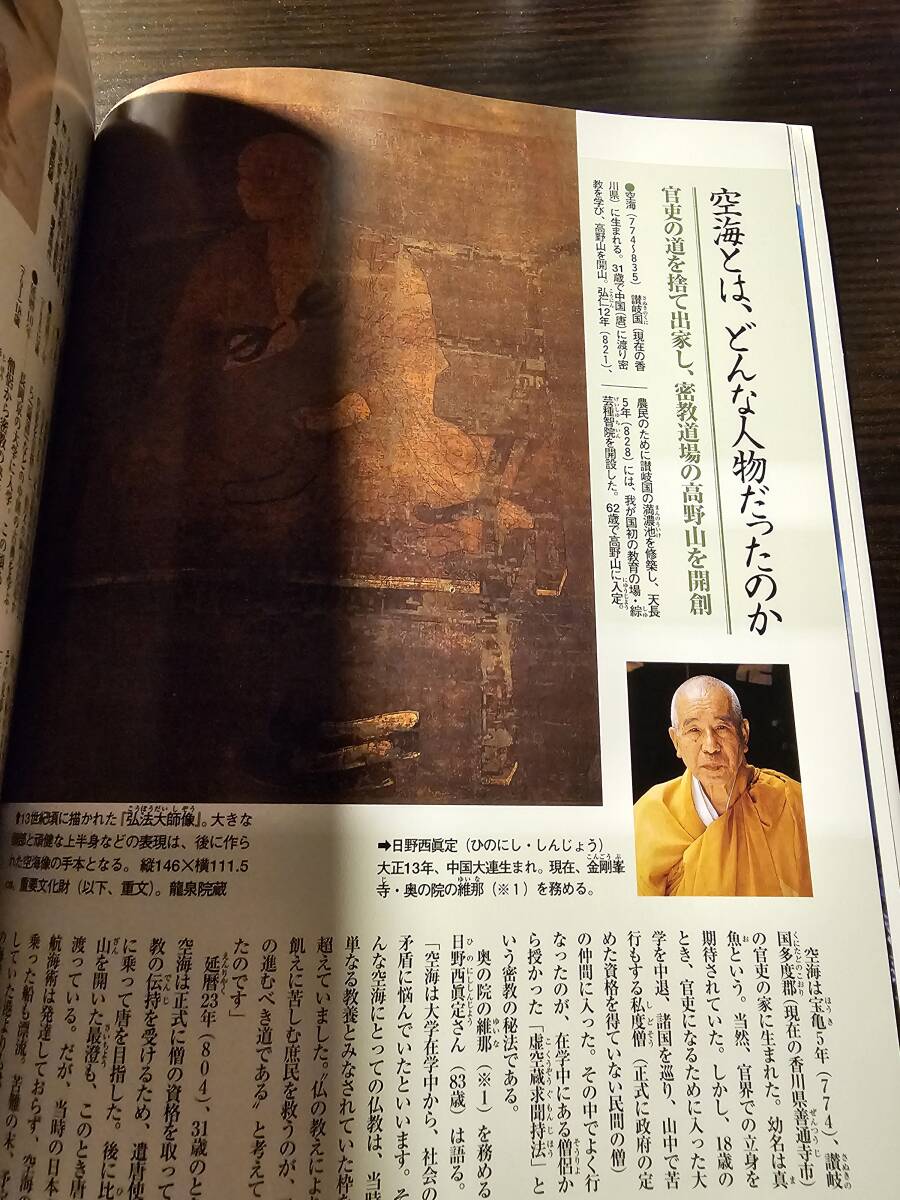 空海とは、どんな人物だったのか
官吏の道を捨て出家し、密教道場の高野山を開創
●空海(774〜835) 讃岐国(現在の香
川県)に生まれる。31歳で中国(唐)に渡り密
教を学び、高野山を開山。弘仁12年(821)、
農民のために讃岐国の満濃池を修築し、天長
5年(828)には、我が国初の教育の場・綜
芸種智院を開設した。62歳で高野山に入定。
13世紀頃に描かれた『弘法大師像』。大きな
と頑健な上半身などの表現は、後に作ら
れた空海像の手本となる。縦146×横111.5
㎝。重要文化財(以下、重文)。龍泉院蔵
➡日野西眞定(ひのにし・しんじょう)
大正13年、中国大連生まれ。現在、金剛峯
寺・奥の院の維那(※1)を務める。
空海は宝亀5年(774)、讃岐
国多度郡(現在の香川県善通寺市)
の官吏の家に生まれた。幼名は真
魚という。当然、官界での立身を
期待されていた。しかし、18歳の
とき、官吏になるために入った大
学を中退、諸国を巡り、山中で苦
行もする私度僧(正式に政府の定
めた資格を得ていない民間の僧)
の仲間に入った。その中でよく行
なったのが、在学中にある僧侶か
ら授かった「虚空蔵求聞持法」と
いう密教の秘法である。
奥の院の維那(※1)を務める
日野西眞定さん(83歳)は語る。
「空海は大学在学中から、社会の
矛盾に悩んでいたといいます。そ
んな空海にとっての仏教は、当時
単なる教養とみなされていた枠を
超えていました。〝仏の教えによ
飢えに苦しむ庶民を救うのが、
の進むべき道である〟と考えて
たのです」
延暦23年(804)、31歳のと
空海は正式に僧の資格を取って
教の伝持を受けるため、遣唐使
に乗って唐を目指した。後に比
山を開いた最澄も、このとき唐
渡っている。だが、当時の日本
航海術は発達しておらず、空海の
乗った船も漂流。苦難の末、